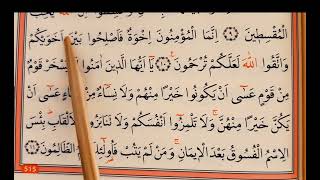 الْمُقْسِطِينَ ﴿٩﴾ اِنَّمَا الْمُؤْمِنُونَ اِخْوَةٌ فَاَصْلِحُوا بَيْنَ اَخَوَيْكُمْ
وَاتَّقُوا اللّٰهَ لَعَلَّكُمْ تُرْحَمُونَ ﴿١٠﴾ يَٓا اَيُّهَا الَّذِينَ اٰمَنُوا لَا يَسْخَرْ قَوْمٌ
مِنْ قَوْمٍ عَسٰٓى اَنْ يَكُونُوا خَيْرًا مِنْهُمْ وَلَا نِسَٓاءٌ مِنْ نِسَٓاءٍ عَسٰٓى اَنْ
يَكُنَّ خَيْرًا مِنْهُنَّ وَلَا تَلْمِزُٓوا اَنْفُسَكُمْ وَلَا تَنَابَزُوا بِالْاَلْقَابِ بِئْسَ
الِاسْمُ الْفُسُوقُ بَعْدَ الْاِيمَانِ وَمَنْ لَمْ يَتُبْ فَاُولٰٓئِكَ هُمُ الظَّالِمُونَ ﴿١١﴾
515